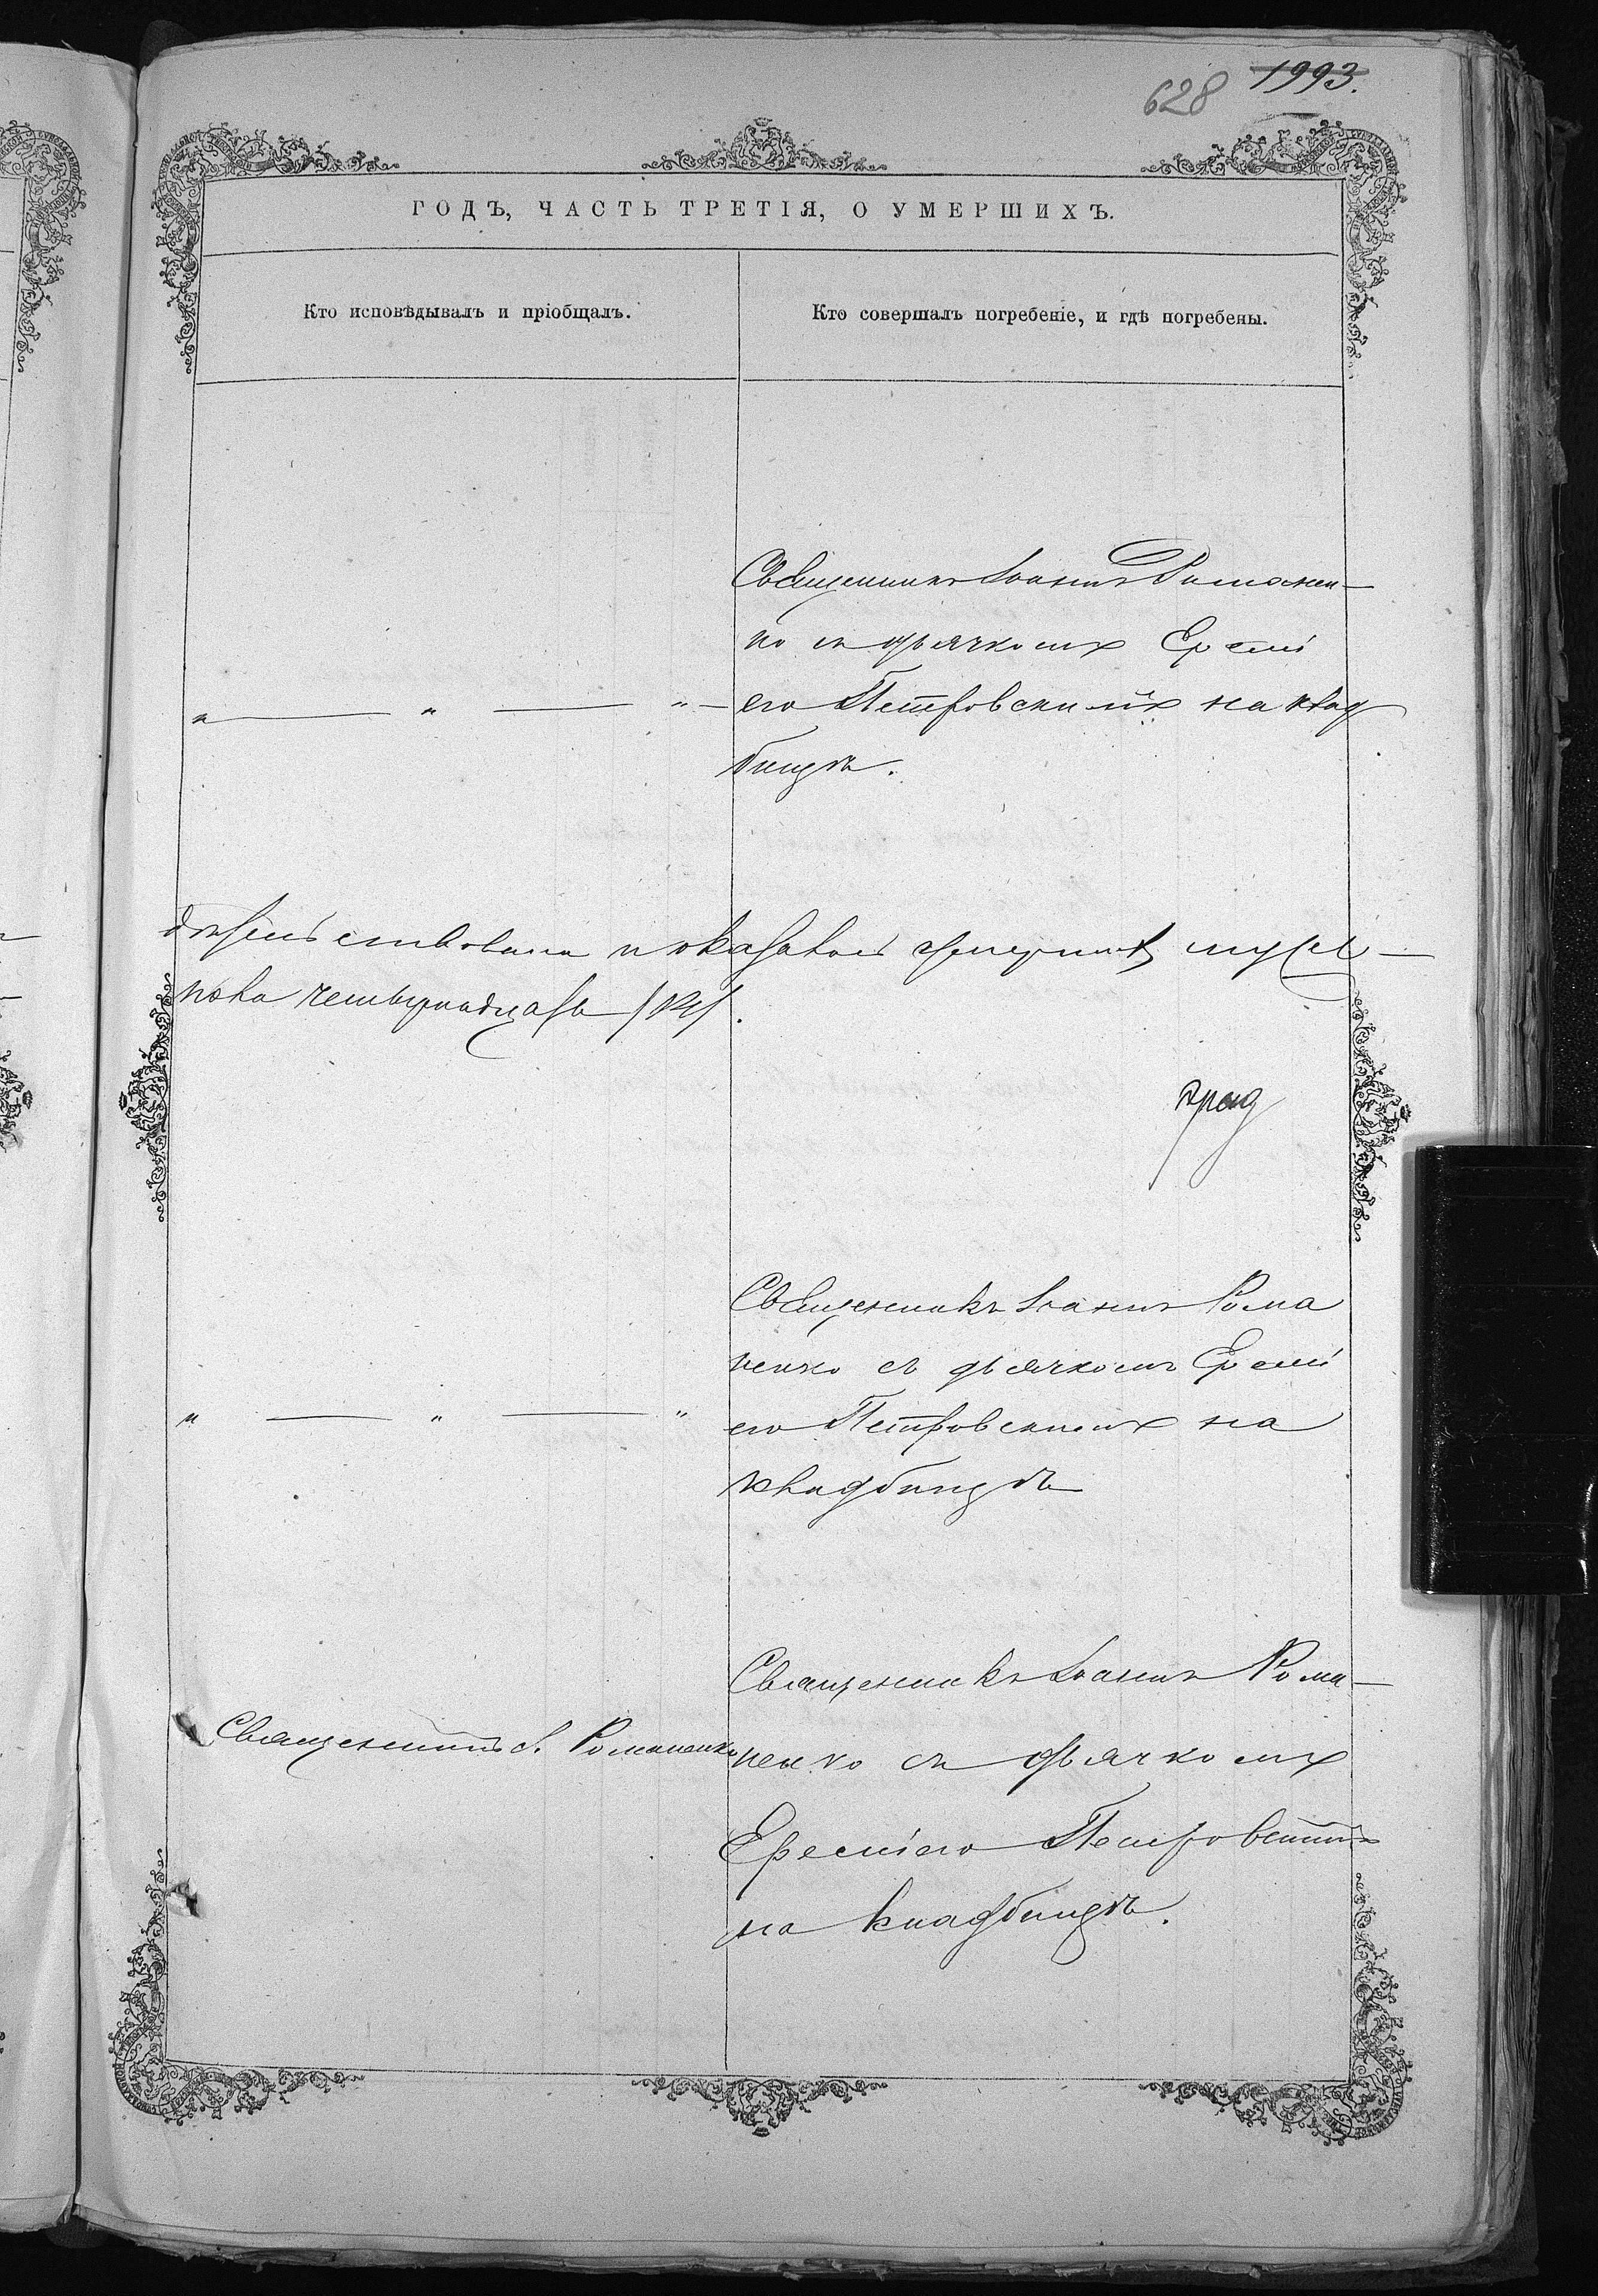 628 1993.
ГОДЪ, ЧАСТЬ ТРЕТІЯ, О УМЕРШИХЪ.
Кто исповѣдывалъ и пріобщалъ.
Кто совершалъ погребеніе, и гдѣ погребены.
Священникъ Іоаннъ Романен-
ко съ дьячкомъ Еремі
" — " — "
его Петровскимъ на клад
бищѣ.
умершихъ мужес-
пола четырнадцать /14/.
Священникъ Іоаннъ Рома
ненко съ дьячкомъ Еремі
" — " — "
его Петровскимъ на
кладбищѣ
Священникъ Іоаннъ Рома-
Священникъ І. Романенко
ненко съ дьячкомъ
Ереміею Петровскимъ
на кладбищѣ.